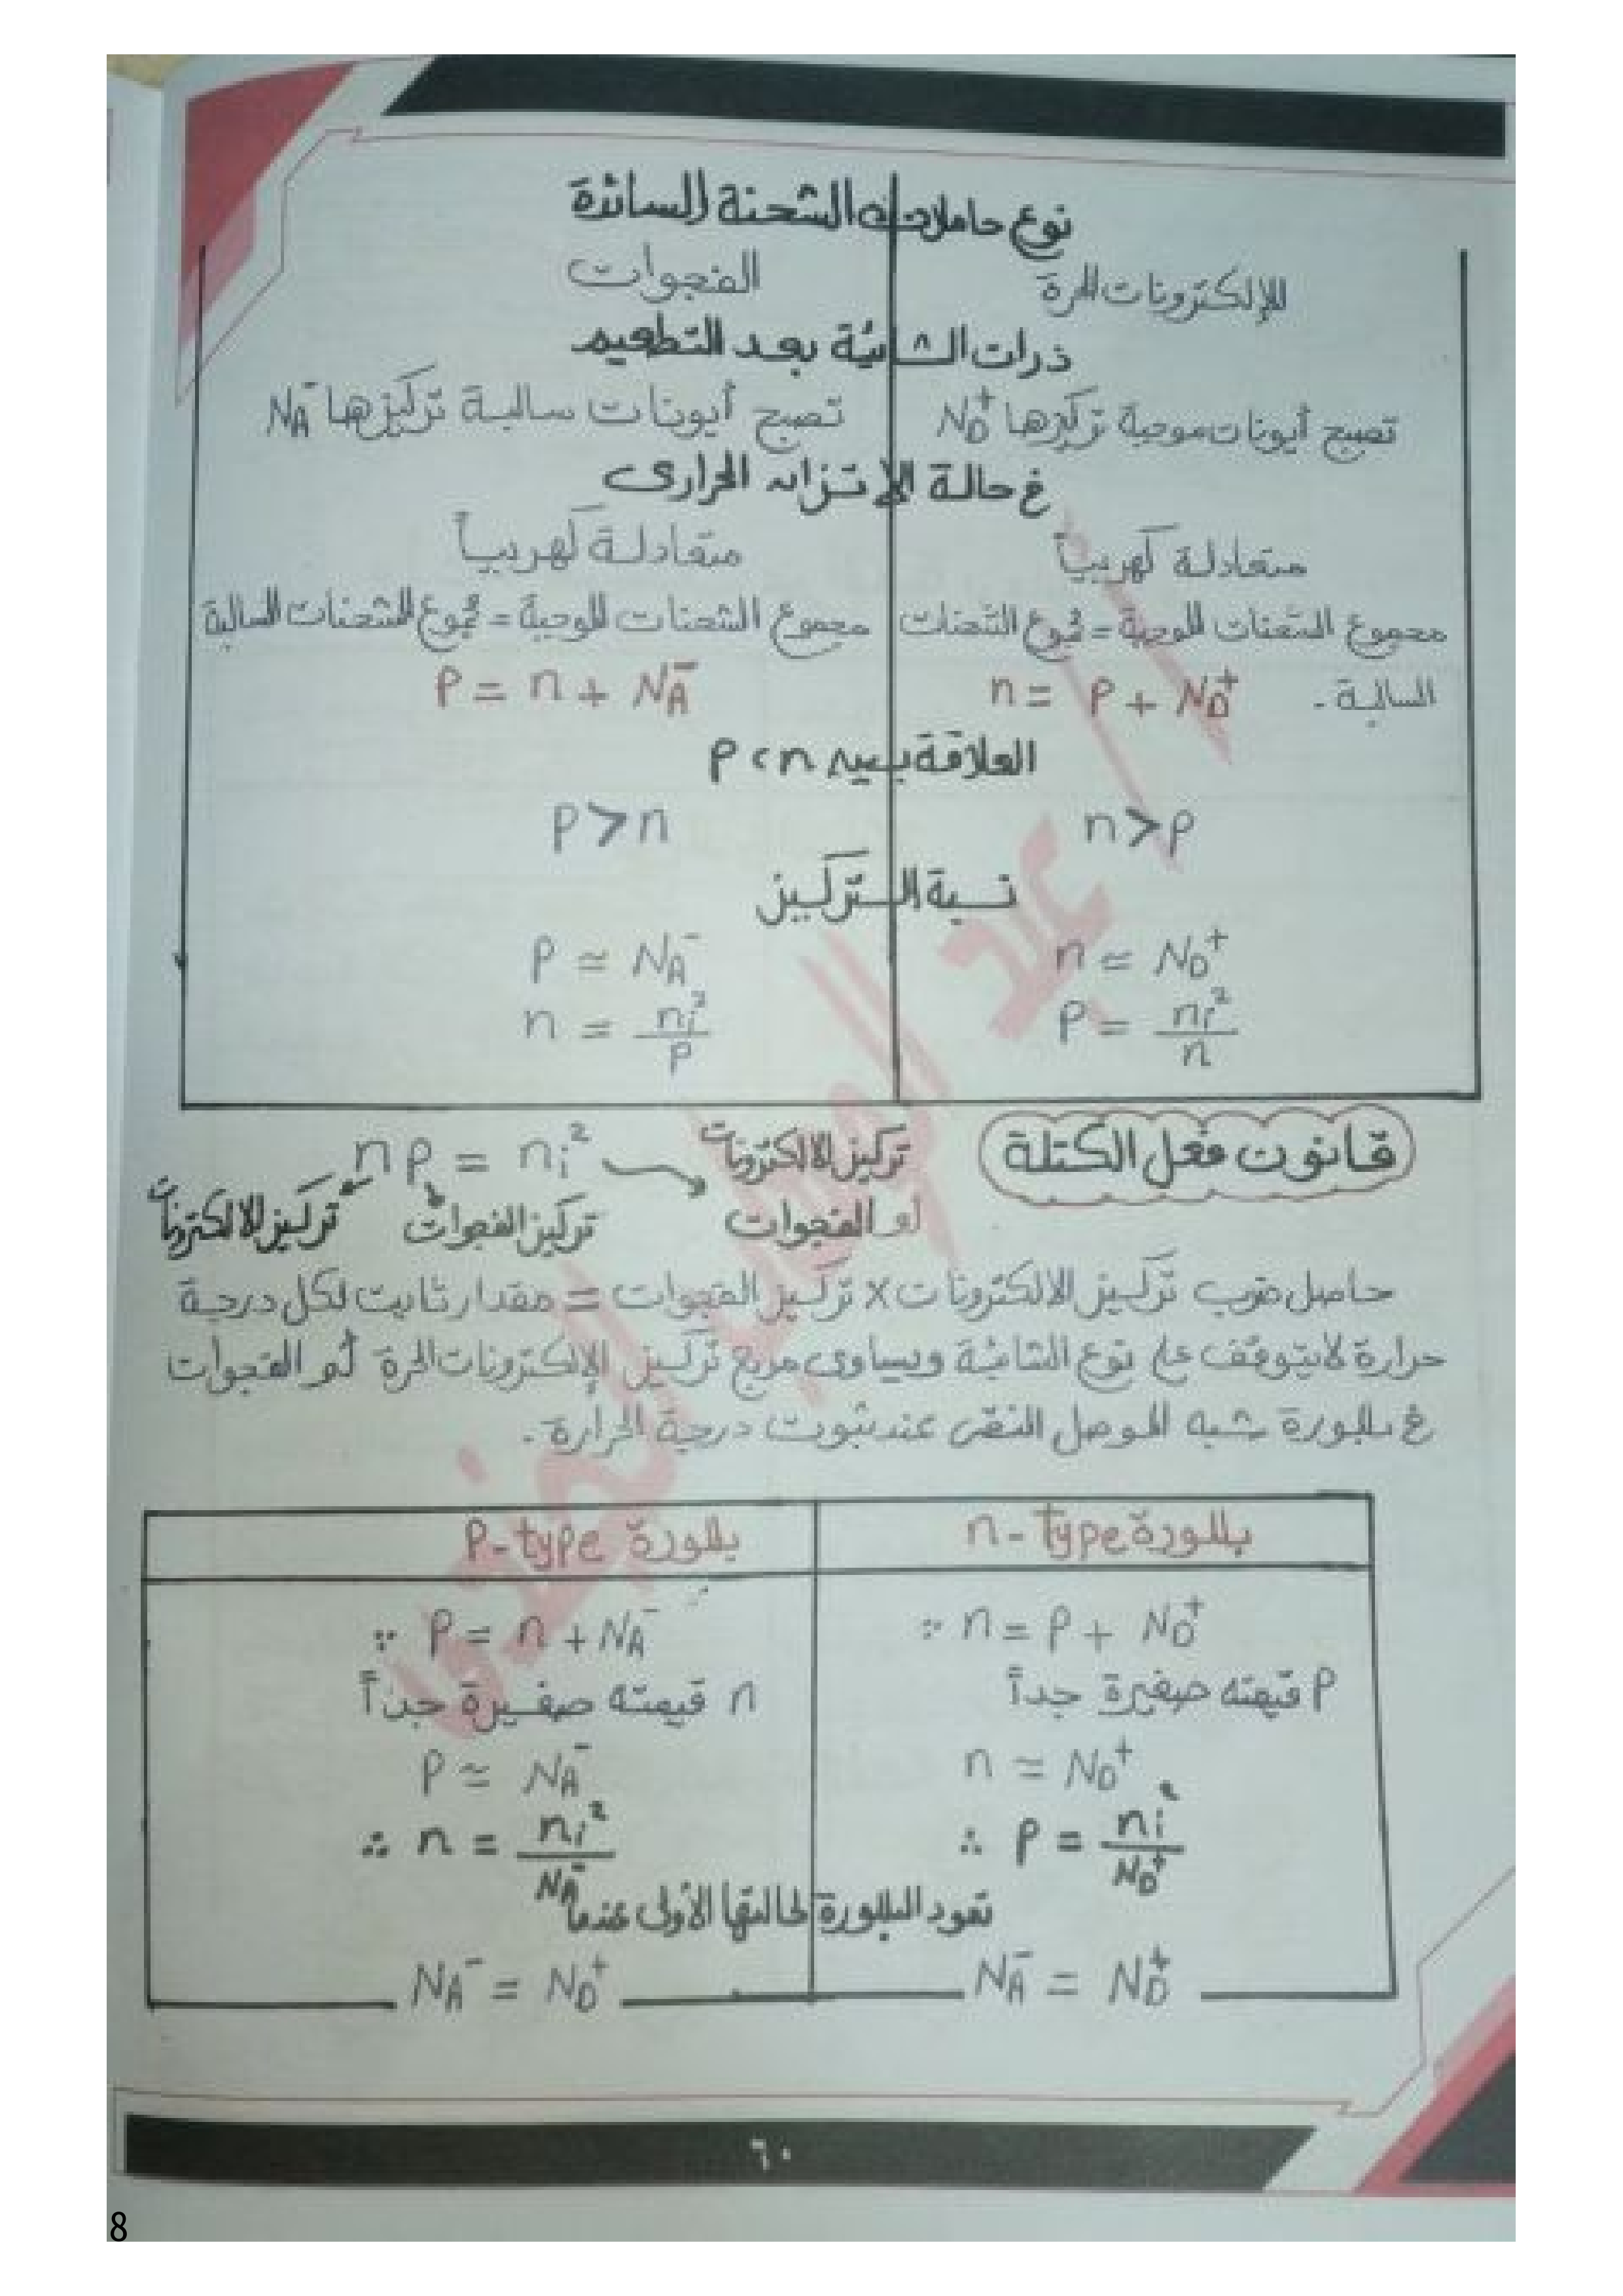 نوع حاملات الشحنة السائدة
الإلكترونات الحرة
الفجوات
ذرات الشائبة بعد التطعيم
تصبح أيونات موجبة تركيزها ND+
تصبح أيونات سالبة تركيزها NA-
فى حالة الإتزان الحرارى
متعادلة كهربياً
متعادلة كهربياً
مجموع الشحنات الموجبة = مجموع الشحنات
السالبة. n = p + ND+
مجموع الشحنات الموجبة = مجموع الشحنات السالبة
P = n + NA-
العلاقة بين p , n
n > p
p > n
نسبة التركيز
n ≃ ND+
P = ni²/n
P ≃ NA-
n = ni²/P
قانون فعل الكتلة
np = ni²
تركيز الالكترونات
أو الفجوات
تركيز الفجوات
تركيز الالكترونات
حاصل ضرب تركيز الالكترونات × تركيز الفجوات = مقدار ثابت لكل درجة
حرارة لا يتوقف على نوع الشائبة ويساوى مربع تركيز الإلكترونات الحرة أو الفجوات
فى بللورة شبه الموصل النقى عند ثبوت درجة الحرارة.
بللورة n-type
بللورة P-type
∵ n = p + ND+
p قيمته صغيرة جداً
n ≃ ND+
∴ p = ni²/ND+
∵ P = n + NA-
n قيمته صغيرة جداً
P ≃ NA-
∴ n = ni²/NA-
تعود البللورة لحالتها الأولى عندما
NA- = ND+
NA- = ND+
٦٠
8